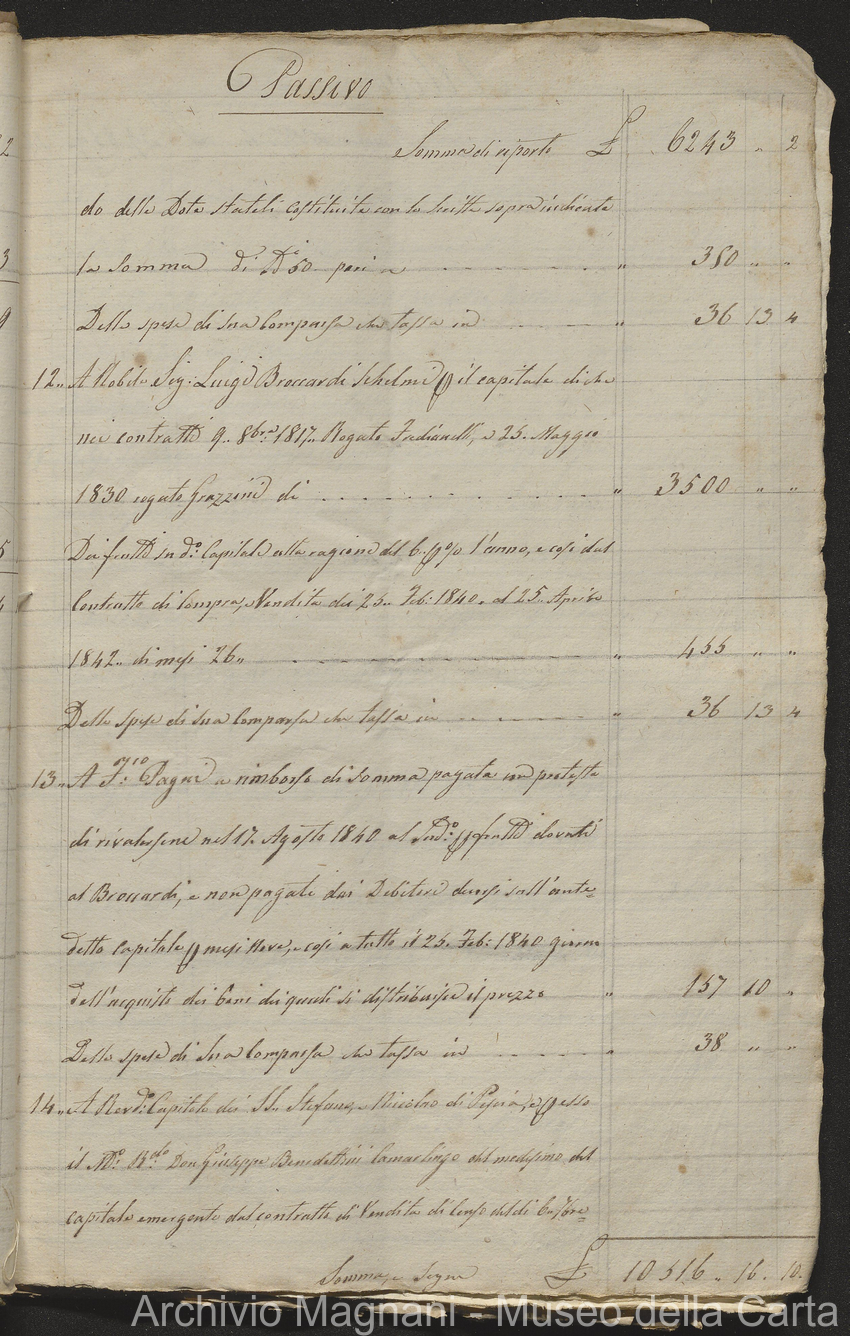 Passivo
Somma di riporto £ 6243 " 2
do della Dote stateli costituite con la scritta sopra indicata
la somma di D.i 50. pari a " 350 " "
Delle spese di sua Comparsa che tassa in " 36 13 4
12.. A Nobile Sig: Luigi Broccardi Schelmi p il capitale di che
nei contratti 9.. 8bre 1817.. Rogato Fedianelli, e 25. Maggio
1830 rogato Grazzini di " 3500 " "
Dei frutti su d.o Capitale alla ragione del 6. p % l'anno, e così dal
Contratto di Compra, e Vendita dei 25.. Feb: 1840. al 25.. Aprile
1842.. di mesi 26.. " 455 " "
Delle spese di sua Comparsa che tassa in " 36 13 4
13.. A Pagni a rimborso di somma pagata con protesta
di rivalersene nel 17. Agosto 1840 al Sud.o p frutti dovuti
al Broccardi, e non pagati dai Debitori decorsi sull'ante=
detto Capitale p mesi Nove, e così a tutto il 25. Feb: 1840 giorno
dell'acquisto dei beni dei quali si distribuisce il prezzo " 157 10 "
Delle spese di sua Comparsa che tassa in " 38 " "
14.. Al Rev.do Capitolo dei SS. Stefano, e Niccolao di Pescia, e p esso
il M.o R.do Don Giuseppe Benedettini Camarlingo del medesimo del
capitale emergente dal contratto di Vendita di Censo del dì 6. 7bre=
Somma, e Segue £ 10816 " 16 " 10.
Archivio Magnani - Museo della Carta